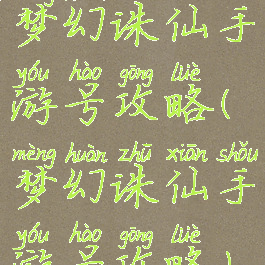 梦幻诛仙手
yóu hào gōng lüè
游号攻略(
mèng huàn zhū xiān shǒu
梦幻诛仙手
yóu hào gōng lüè
游号攻略)